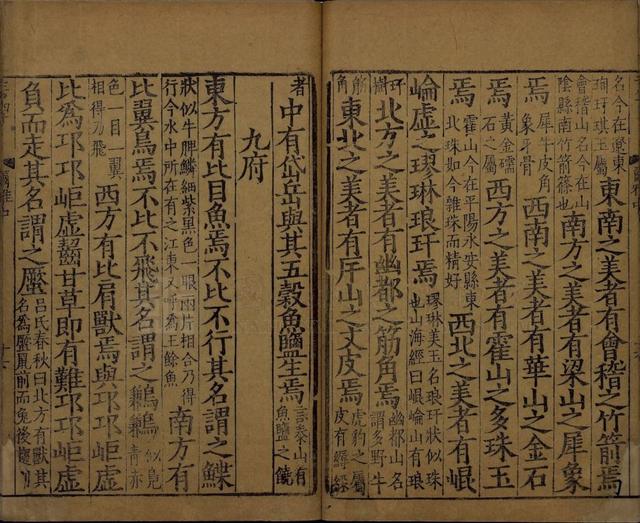 名今在遼東
珣玗琪玉屬
東南之美者有會稽之竹箭焉
會稽山名今在山
陰縣南竹箭篠也
南方之美者有梁山之犀象
焉
犀牛皮角
象牙骨
西南之美者有華山之金石
焉
黃金礝
石之屬
西方之美者有霍山之多珠玉
焉
霍山今在平陽永安縣東
北珠如今雜珠而精好
西北之美者有崐
崘虛之璆琳琅玕焉
璆琳美玉名琅玕狀似珠
也山海經曰崐崘山有琅
玕
樹
北方之美者有幽都之筋角焉
幽都山名
謂多野牛
筋
角
東北之美者有斥山之文皮焉
虎豹之屬
皮有縟綵
者
中有岱岳與其五穀魚鹽生焉
言泰山有
魚鹽之饒
九府
東方有比目魚焉不比不行其名謂之鰈
狀似牛脾鱗細紫黑色一眼兩片相合乃得
行今水中所在有之江東又呼為王餘魚
南方有
比翼鳥焉不比不飛其名謂之鶼鶼
似鳧
青赤
色一目一翼
相得乃飛
西方有比肩獸焉與邛邛岠虛
比為邛邛岠虛齧甘草即有難邛邛岠虛
負而走其名謂之蟨
呂氏春秋曰北方有獸其
名為蟨鼠前而兔後趨